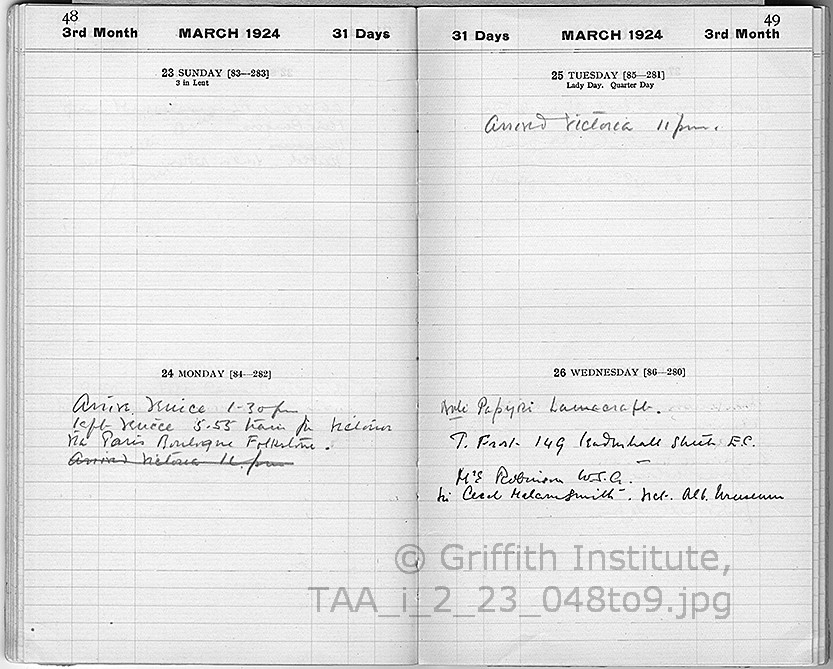 48
3rd Month MARCH 1924 31 Days
23 SUNDAY [83—283]
3 in Lent
24 MONDAY [84—282]
Arrive Venice 1-30 pm
left Venice 5-55 train for Victoria
via Paris Boulogne Folkstone.
Arrived Victoria 11. pm
49
31 Days MARCH 1924 3rd Month
25 TUESDAY [85—281]
Lady Day. Quarter Day
Arrived Victoria 11 pm.
26 WEDNESDAY [86—280]
Note Papyri Lamacraft.
T. Frost 149 Leadenhall Street E.C.
Mrs Robinson W.S.G.
Sir Cecil Harcourt Smith. Vict. Alb. Museum
© Griffith Institute,
TAA_i_2_23_048to9.jpg